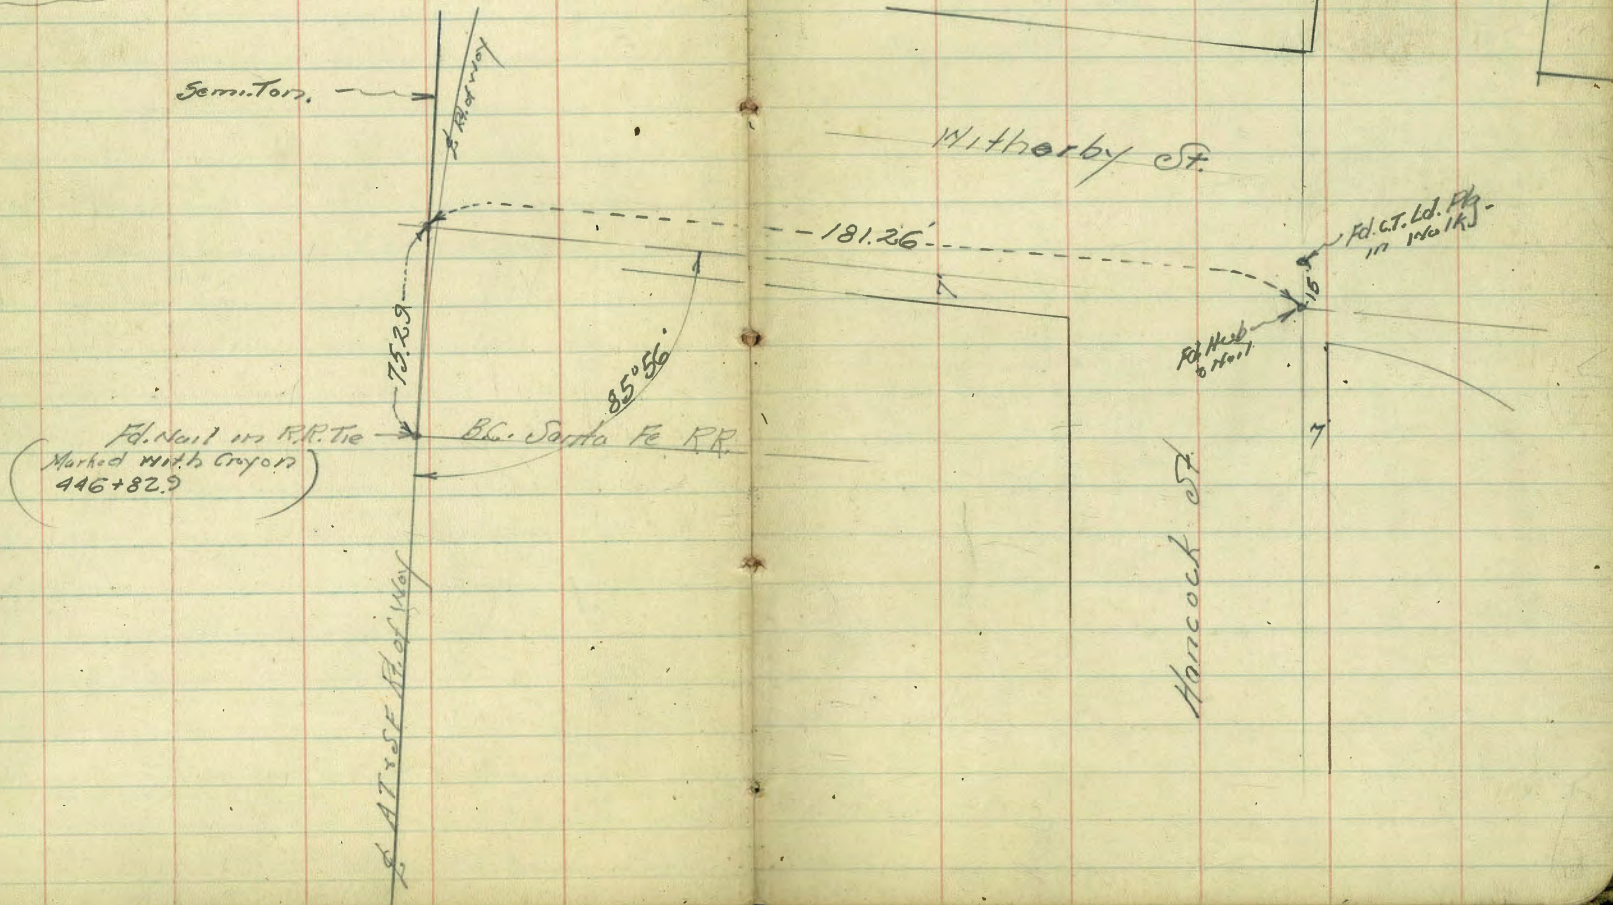 Semi.Tan.
℄ Rt. of Way
Witherby St.
Fd. C.T. Ld. Plg.
in Walk
181.26'
15'
7'
75.29
Fd. Hub
& Nail
85°56'
Fd. Nail in R.R. Tie
B.C. Santa Fe R.R.
Marked with Crayon
446+82.9
7
Hancock St.
℄ A T & S F Rt. of Way